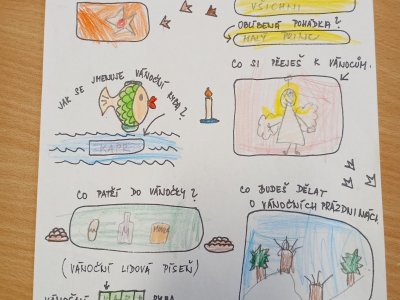 VŠICHNI
OBLÍBENÁ POHÁDKA?
MALÝ PRINC
JAK SE JMENUJE VÁNOČNÍ RYBA?
KAPR
CO SI PŘEJEŠ K VÁNOCŮM?
CO PATŘÍ DO VÁNOČKY?
(VÁNOČNÍ LIDOVÁ PÍSEŇ)
CO BUDEŠ DĚLAT
O VÁNOČNÍCH PRÁZDNINÁCH